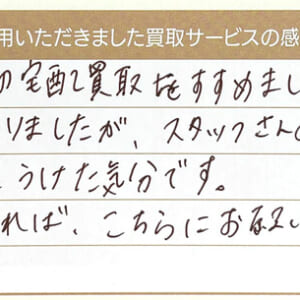 用いただきました買取サービスの感
の宅配買取をすすめまし
りましたが、スタッフさんの
うけた気分です。
れば、こちらにお願い